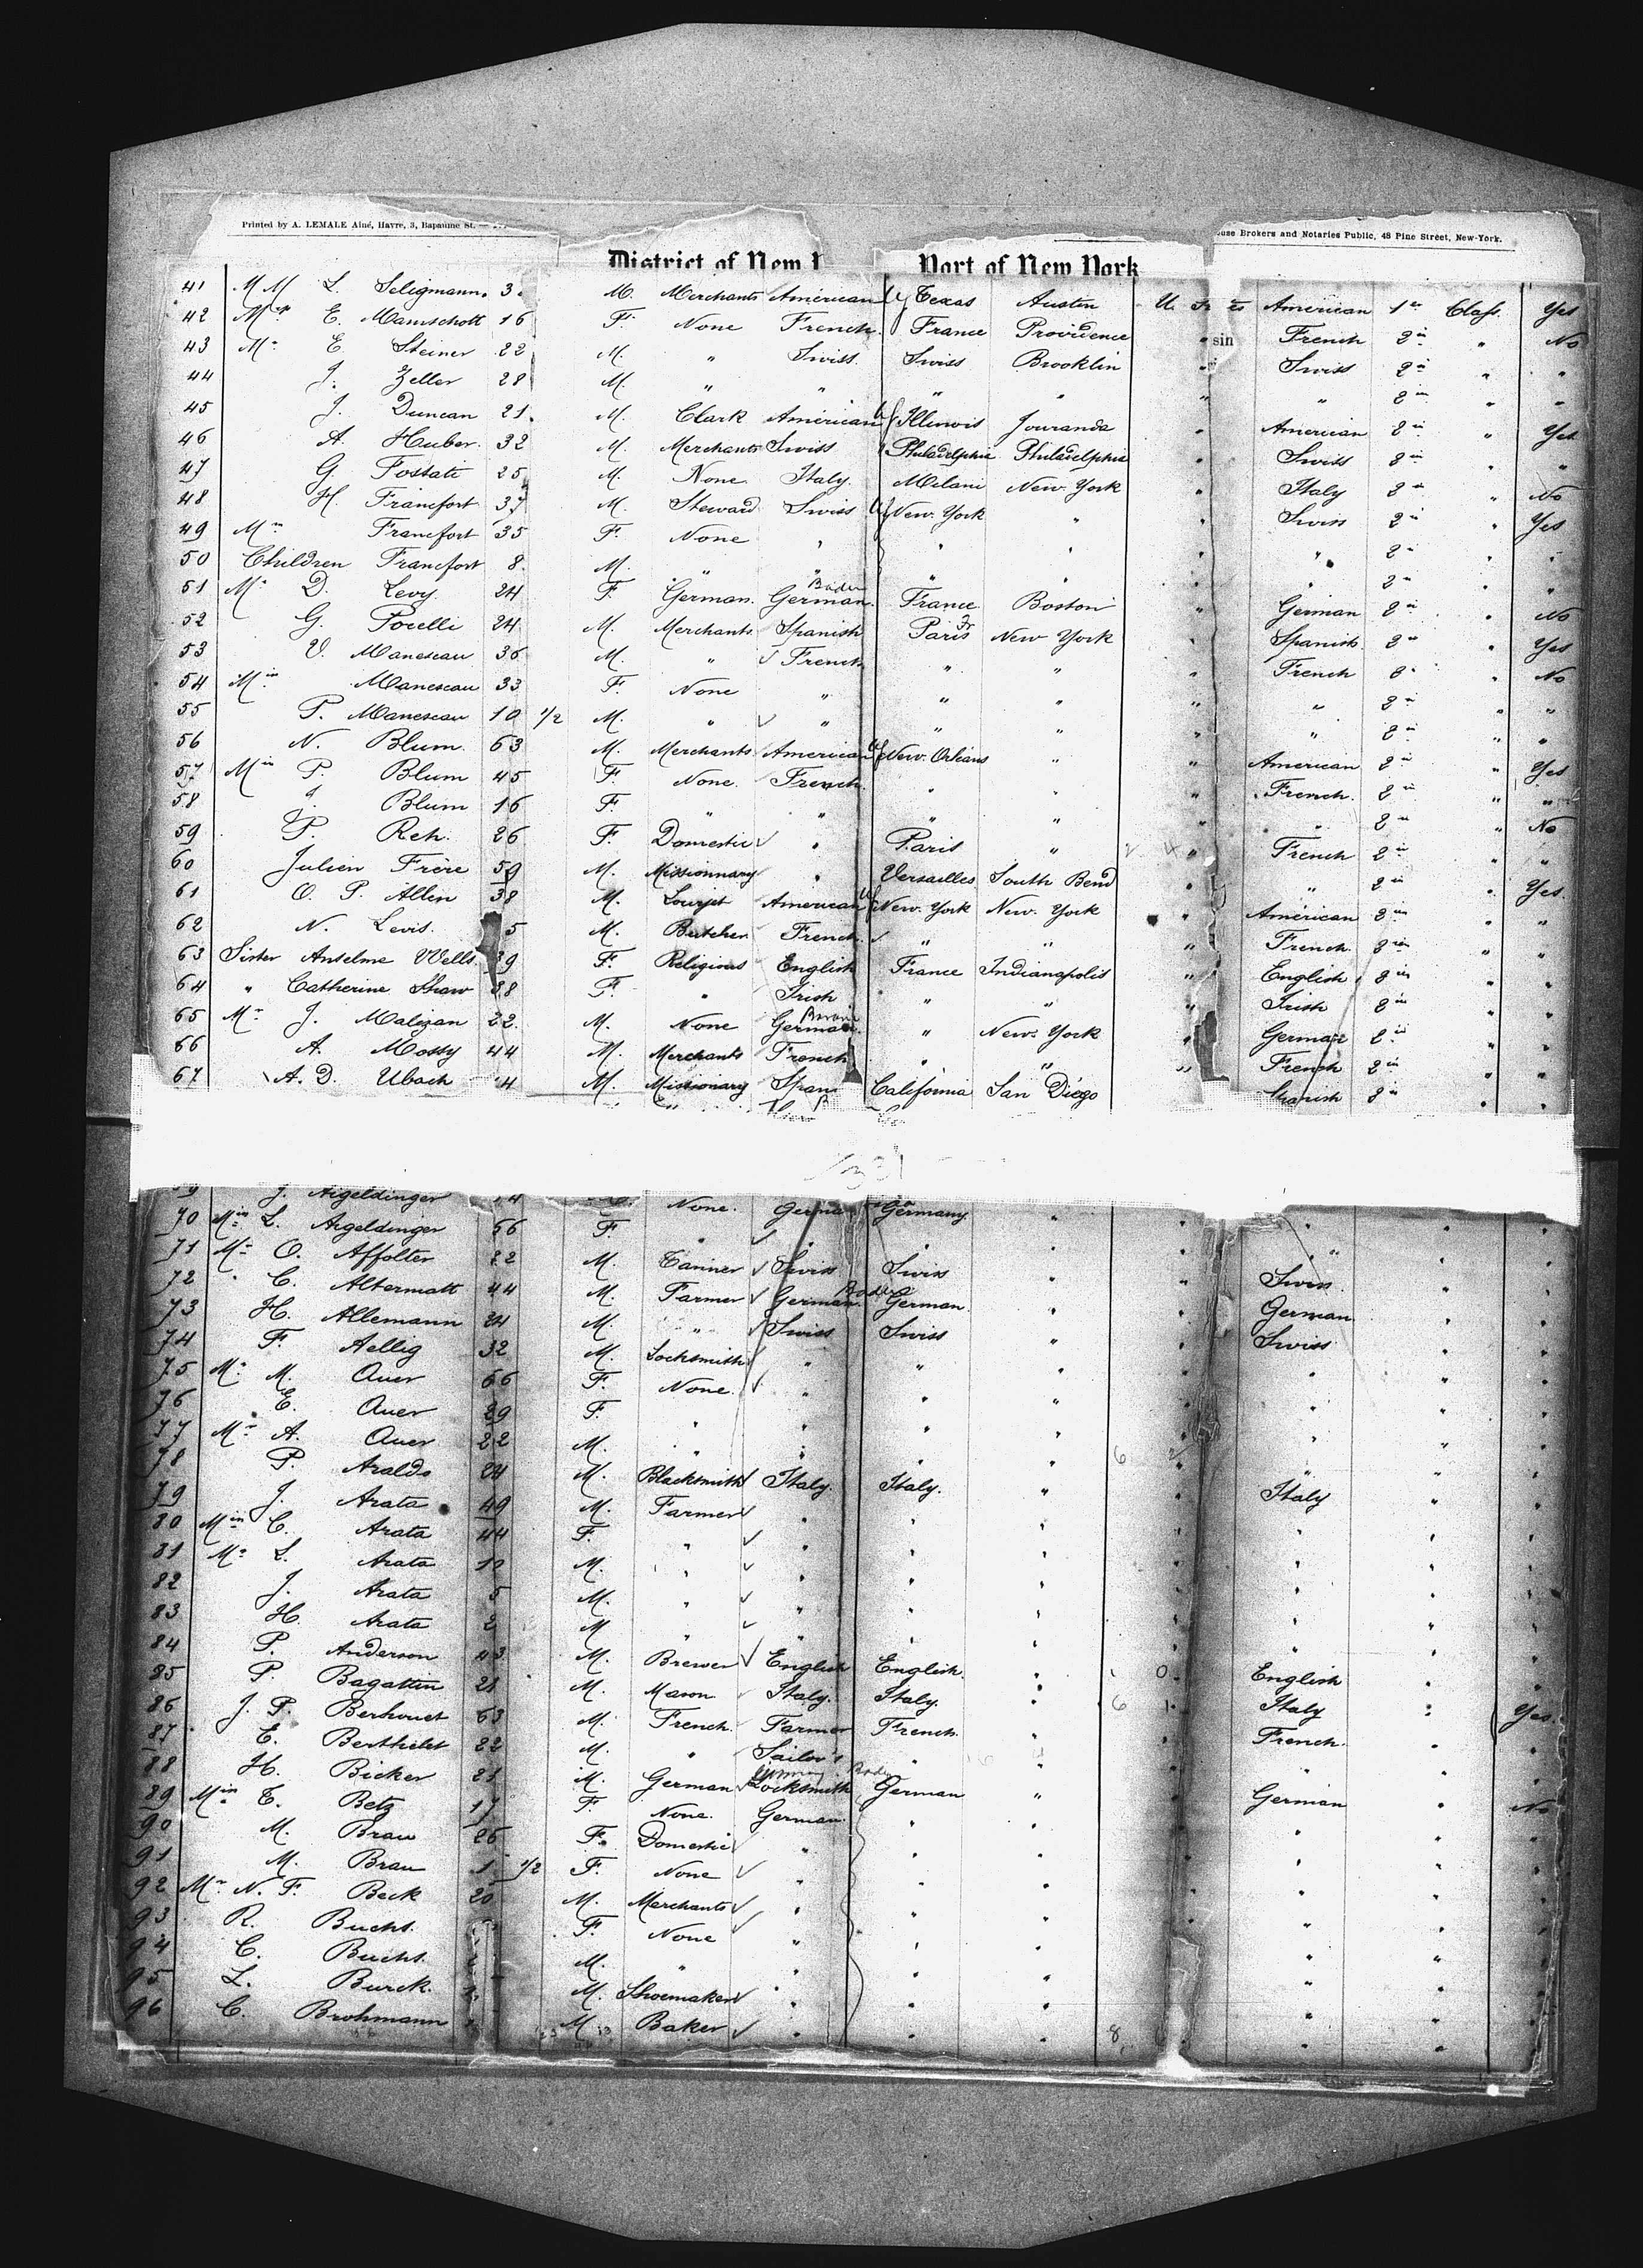 Printed by A. LEMALE Ainé, Havre, 3, Bapaume St.
Brokers and Notaries Public, 48 Pine Street, New-York.
District of New Port of New York
41 MM L. Seligmann. 3 M. Merchants American Texas Austin American 1 Class. Yes
42 E. Mamschott 16 F. None French. France Providence sin French 2 " No
43 Mr E. Steiner 22 M. " Swiss. Swiss Brooklin " Swiss 2 " "
44 J. Zeller 28 M. " " " " " " 2 " "
45 J. Duncan 21. M. Clark American Illinois Jouranda " American 2 " Yes
46 A. Huber. 32 M. Merchants Swiss Philadelphia Philadelphia " Swiss 2 " "
47 G. Fostati 25 M. None Italy. Melani New York " Italy 2 " No
48 H. Francfort 37 M. Steward Swiss New. York " " Swiss 2 " Yes
49 Mm Francfort 35 F. None " " " " " 2 " "
50 Children Francfort 8. M. " " " " " " 2 " "
51 Mr D. Levy. 24 F. German. Baden German. France Boston " German 2 " No
52 G. Porelli 24 M. Merchants Spanish Paris Fr New York " Spanish. 2 " Yes
53 V. Manescau 36 M. " French " " " French 2 " No
54 Min Manescau 33 F. None " " " " " 2 " "
55 P. Manescau 10 1/2 M. " " " " " " 2 " "
56 N. Blum. 63 M. Merchants American New. Orleans " " American 2 " Yes
57 Min P. Blum 45 F. None. French. " " " French. 2 " "
58 J. Blum 16 F. " " " " " " 2 " No
59 P. Reh. 26 F. Domestic " Paris " " French 2 " "
60 Julien Frère 59 M. Missionnary " Versailles South Bend " " 2 " Yes.
61 O. P. Allin 38 M. American New. York New. York " American 2 " "
62 N. Levis. 5 M. Butcher French. " " " French 2 " "
63 Sister Anselme Wells. 39 F. Religious English France Indianapolis " English 2 " "
64 " Catherine Shaw 38 F. " Irish " " " Irish 2 " "
65 Mr J. Malizan 22. M. None German. " New. York " German 2 " "
66 A. Mossy 44 M. Merchants French " " " French 2 " "
67 A. D. Ubach 4 M. Missionary Span California San Diégo Spanish 2 " "
9 J. Aigeldinger 14 None. Germa Germany. " "
70 Min L. Aigeldinger 56 F. " " " " " " " "
71 Mr O. Affolter 22 M. Tanner Swiss Swiss " " Swiss. " "
72 " C. Altermatt 44 M. Farmer German. Baden German. " " German " "
73 H. Allemann 24 M. " Swiss Swiss " " Swiss " "
74 F. Aellig 32 M. Locksmith " " " " " " "
75 Mr M. Auer 66 F. None. " " " " " " "
76 E. Auer 29 F. " " " " " " " "
77 Mr A. Auer 22 M. " " " " " " " "
78 P. Araldo 24 M. Blacksmith Italy. Italy. " " Italy " "
79 J. Arata 49 M. Farmer " " " " " " "
80 Min C. Arata 44 F. " " " " " " " "
81 Mr L. Arata 10 M. " " " " " " " "
82 J. Arata 5 M. " " " " " " " "
83 H. Arata 2 M " " " " " " " "
84 P. Anderson 43 M. Brewer English English. " English " "
85 P. Bagattin 28 M. Mason Italy. Italy. " Italy " Yes.
86 J. P. Berhouet 63 M. French. Farmer French. " " French. " "
87 E. Berthelet 22 M. " Sailor's " " " " " "
88 H. Bicker 21 M. German Locksmith German " " German " No
89 Min T. Betz 17 F. None. German. " " " " " "
90 M. Brau 26 F. Domestic " " " " " " "
91 M. Brau 1 1/2 F. None " " " " " " "
92 Mr N. F. Beck 20 M. Merchants " " " " " " "
93 R. Buchs. F. None " " " " " " "
94 C. Buchs. M. " " " " " " " "
95 L. Burck. M. Shoemaker " " " " " " "
96 C. Brohmann M. Baker " " " " " " "